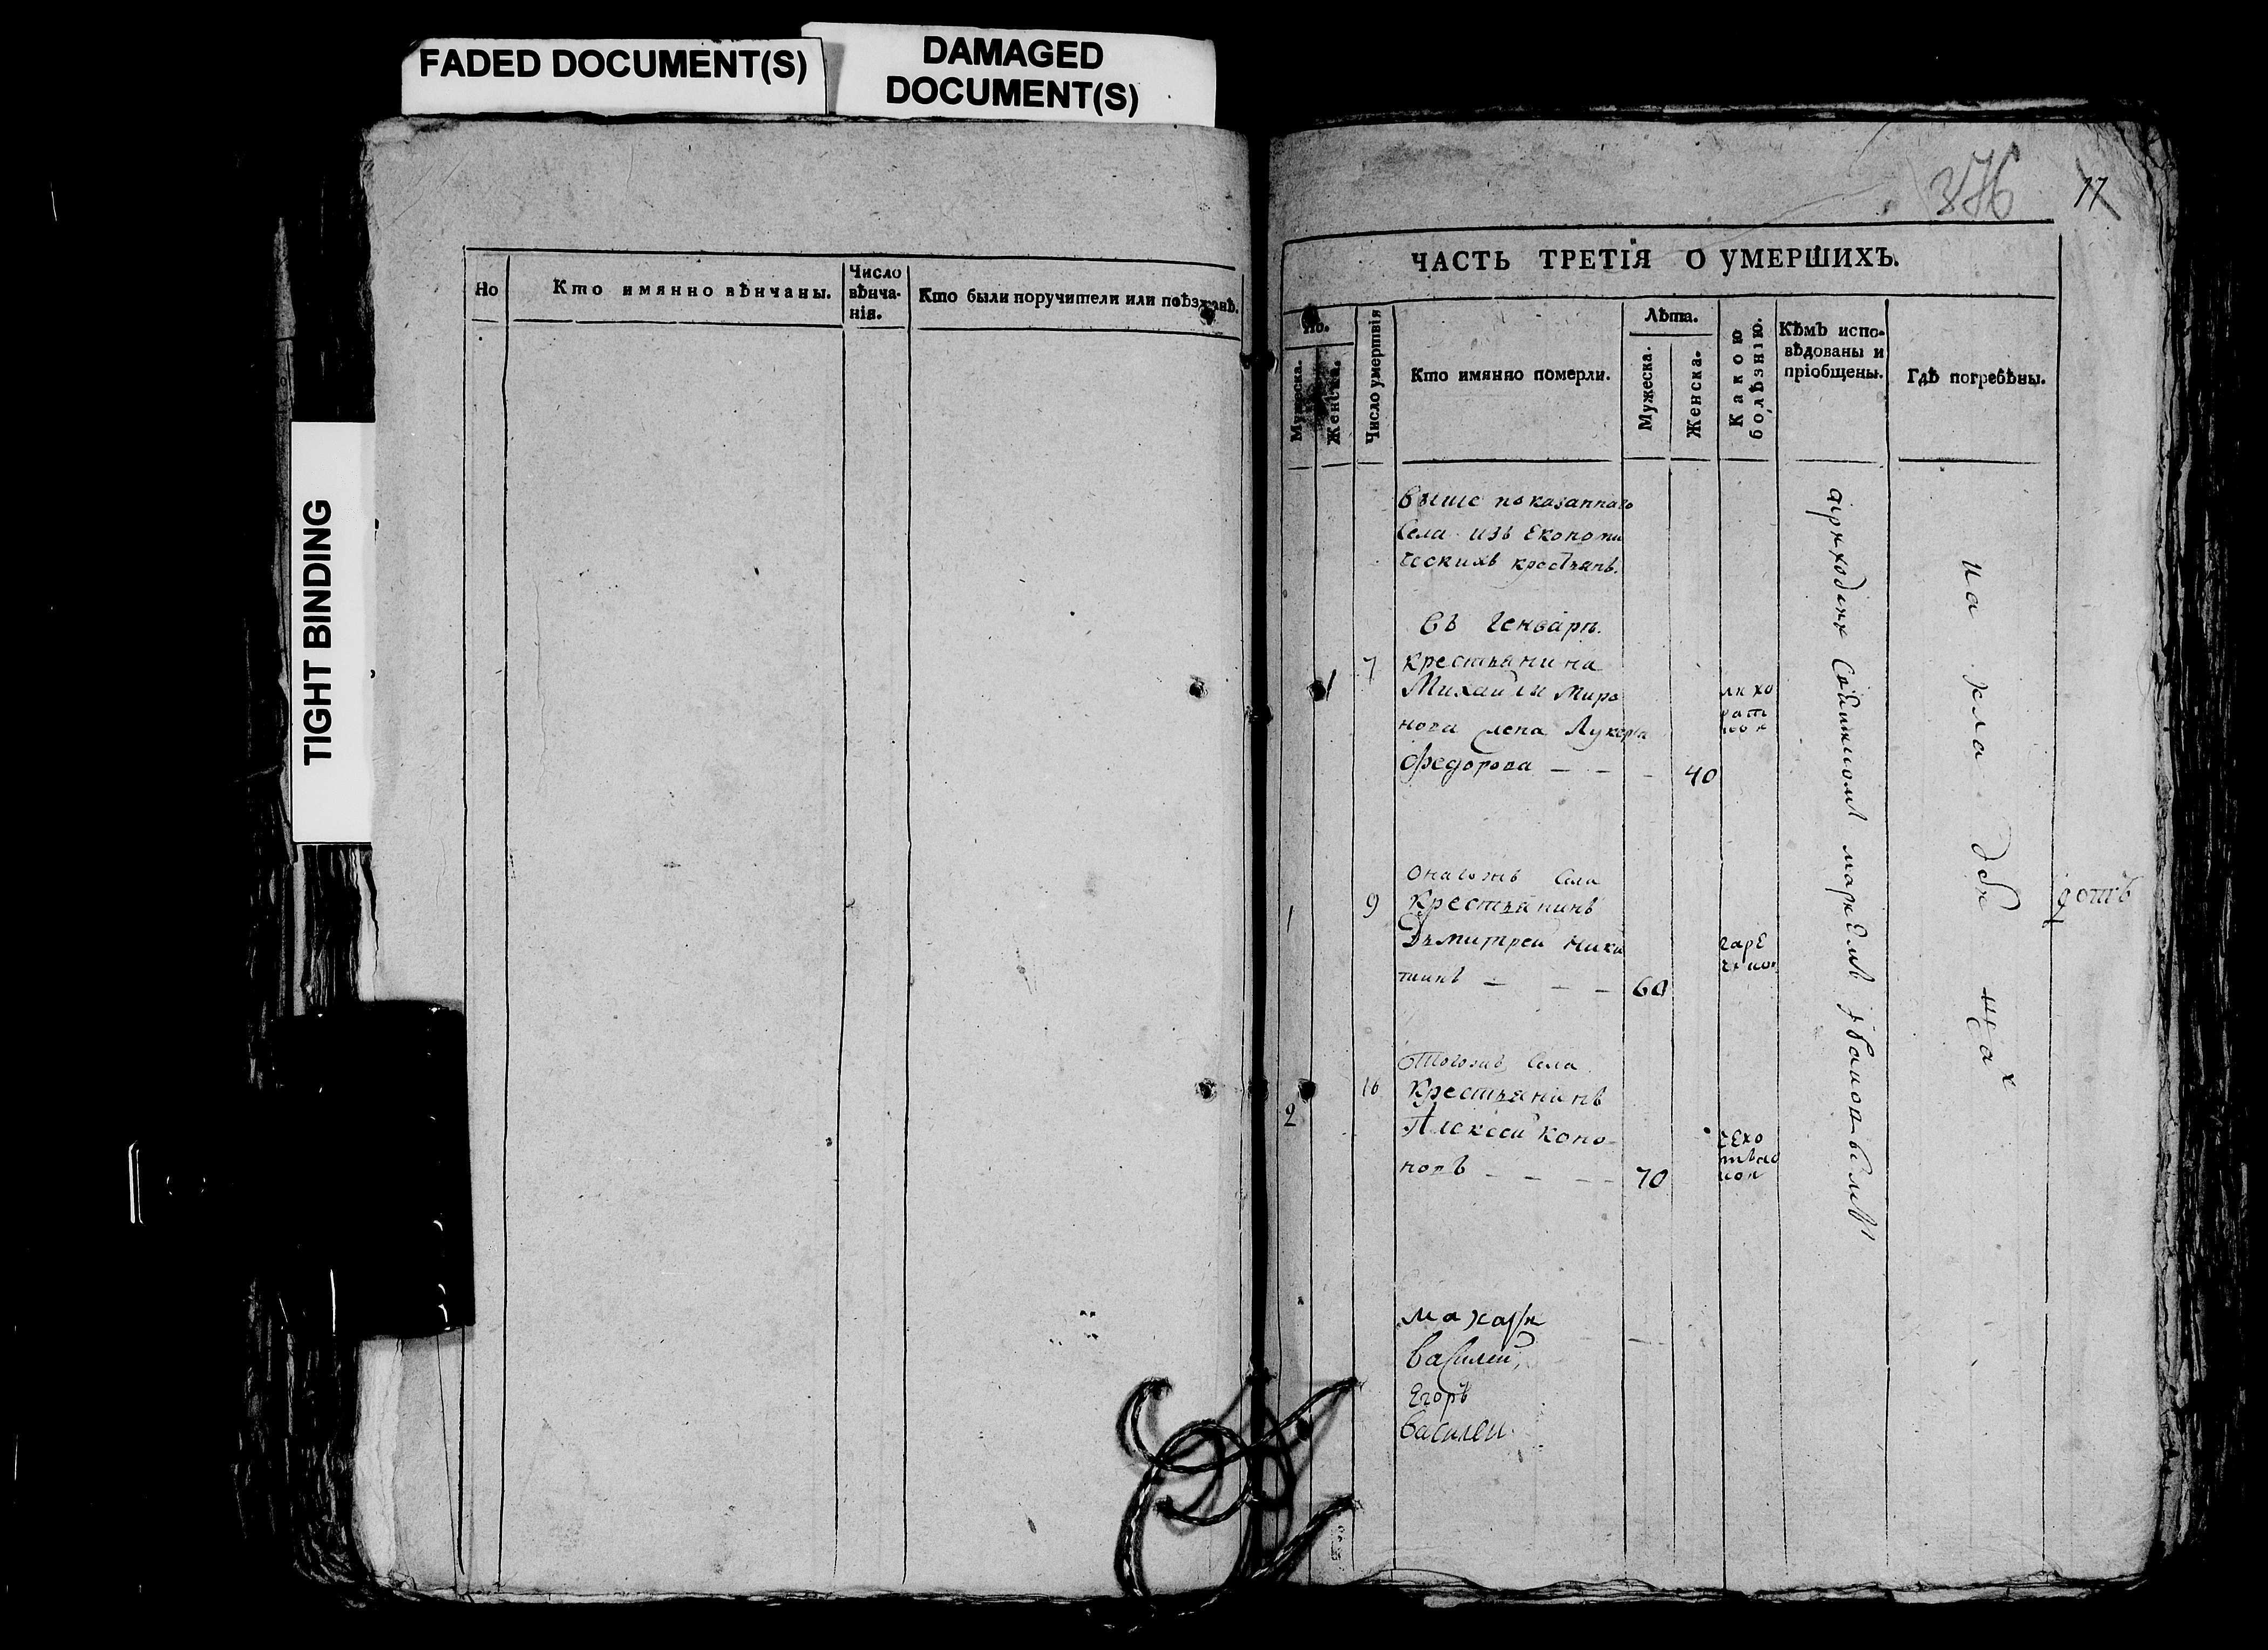 FADED DOCUMENT(S)
DAMAGED
DOCUMENT(S)
TIGHT BINDING
Но
Кто имянно вѣнчаны.
Число
вѣнча-
нія.
Кто были поручители или поѣзжанѣ.
376
17
ЧАСТЬ ТРЕТІЯ О УМЕРШИХЪ.
Но.
Мужеска.
Женска.
Число умертвія
Кто имянно померли.
Лѣта.
Мужеска.
Женска.
Какою
болѣзнію.
Кѣмъ испо-
вѣдованы и
пріобщены.
Гдѣ погребѣны.
выше показаннаго
села изъ Економи
ческихъ крестьянъ.
въ Генваре.
1
7
крестьянина
Михаилы Миро
нова жена Лукерья
Федорова — — —
40
лихо
рат
кои
1
9
села
крестьянинъ
Дьмитреи Ники
тинъ — — —
60
гаре
чкои
2
16
Тогожъ села
крестьянинъ
Алексеи Коно
новъ — — —
70
чехо
тъно
кои
священникомъ
на кла дби щах
макари
василеи
Егоръ
василеи